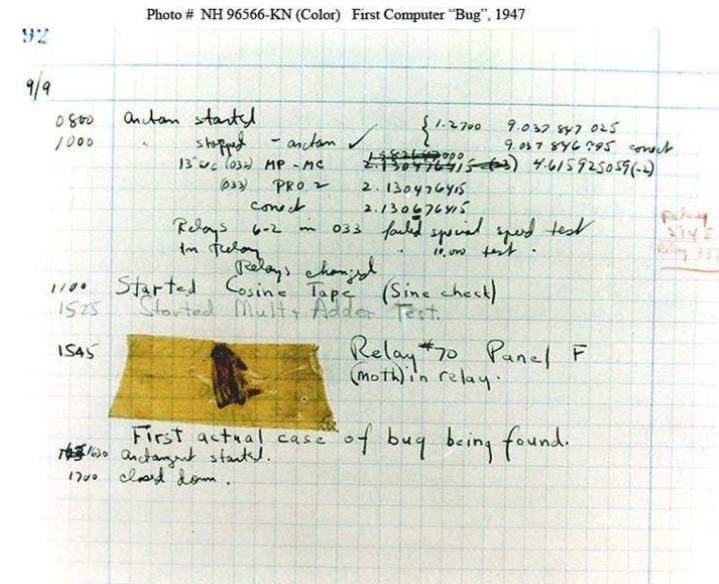 Photo # NH 96566-KN (Color) First Computer “Bug”, 1947
92
9/9
0800 Antan started { 1.2700 9.037 847 025
1000 " stopped - antan ✓ 9.037 846 995 correct
13"uc (032) MP - MC 2.130476415 (-3) 4.615925059(-2)
(033) PRO 2 2.130476415
correct 2.130676415
Relays 6-2 in 033 failed special speed test
In Relay " 10.000 test .
Relays changed
Relay
1100 Started Cosine Tape (Sine check)
1525 Started Mult+ Adder Test.
1545 Relay #70 Panel F
(moth) in relay.
First actual case of bug being found.
1630 antangent started.
1700 closed down .